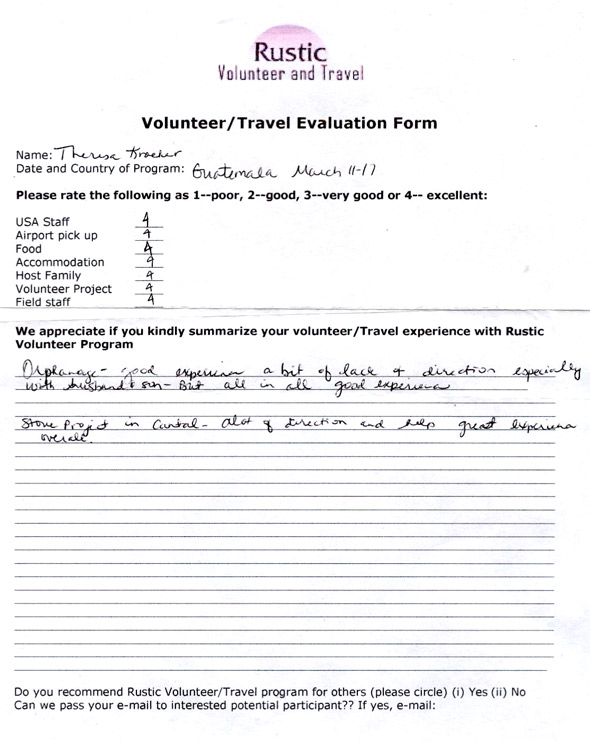 Rustic
Volunteer and Travel
Volunteer/Travel Evaluation Form
Name: Theresa
Date and Country of Program: Guatemala March 11-17
Please rate the following as 1--poor, 2--good, 3--very good or 4-- excellent:
USA Staff 4
Airport pick up 4
Food 4
Accommodation 4
Host Family 4
Volunteer Project 4
Field staff 4
We appreciate if you kindly summarize your volunteer/Travel experience with Rustic
Volunteer Program
Orphanage - good experience a bit of lack of direction especially
with husband & son - But all in all good experience
Stove Project in Cantel - Alot of direction and help great experience
overall.
Do you recommend Rustic Volunteer/Travel program for others (please circle) (i) Yes (ii) No
Can we pass your e-mail to interested potential participant?? If yes, e-mail: